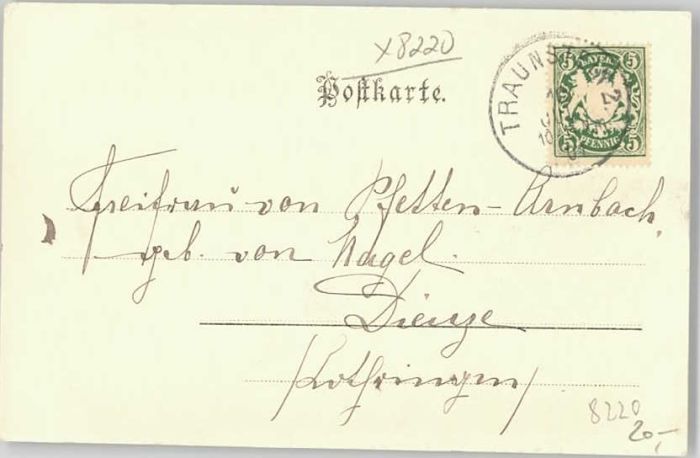 x8220
Postkarte.
TRAUNST
BAYER.
5 5
PFENNIG
5 5
Freifrau von Pfetten-Arnbach,
geb. von Nagel.
Dieuze
/Lothringen/
8220
20,-